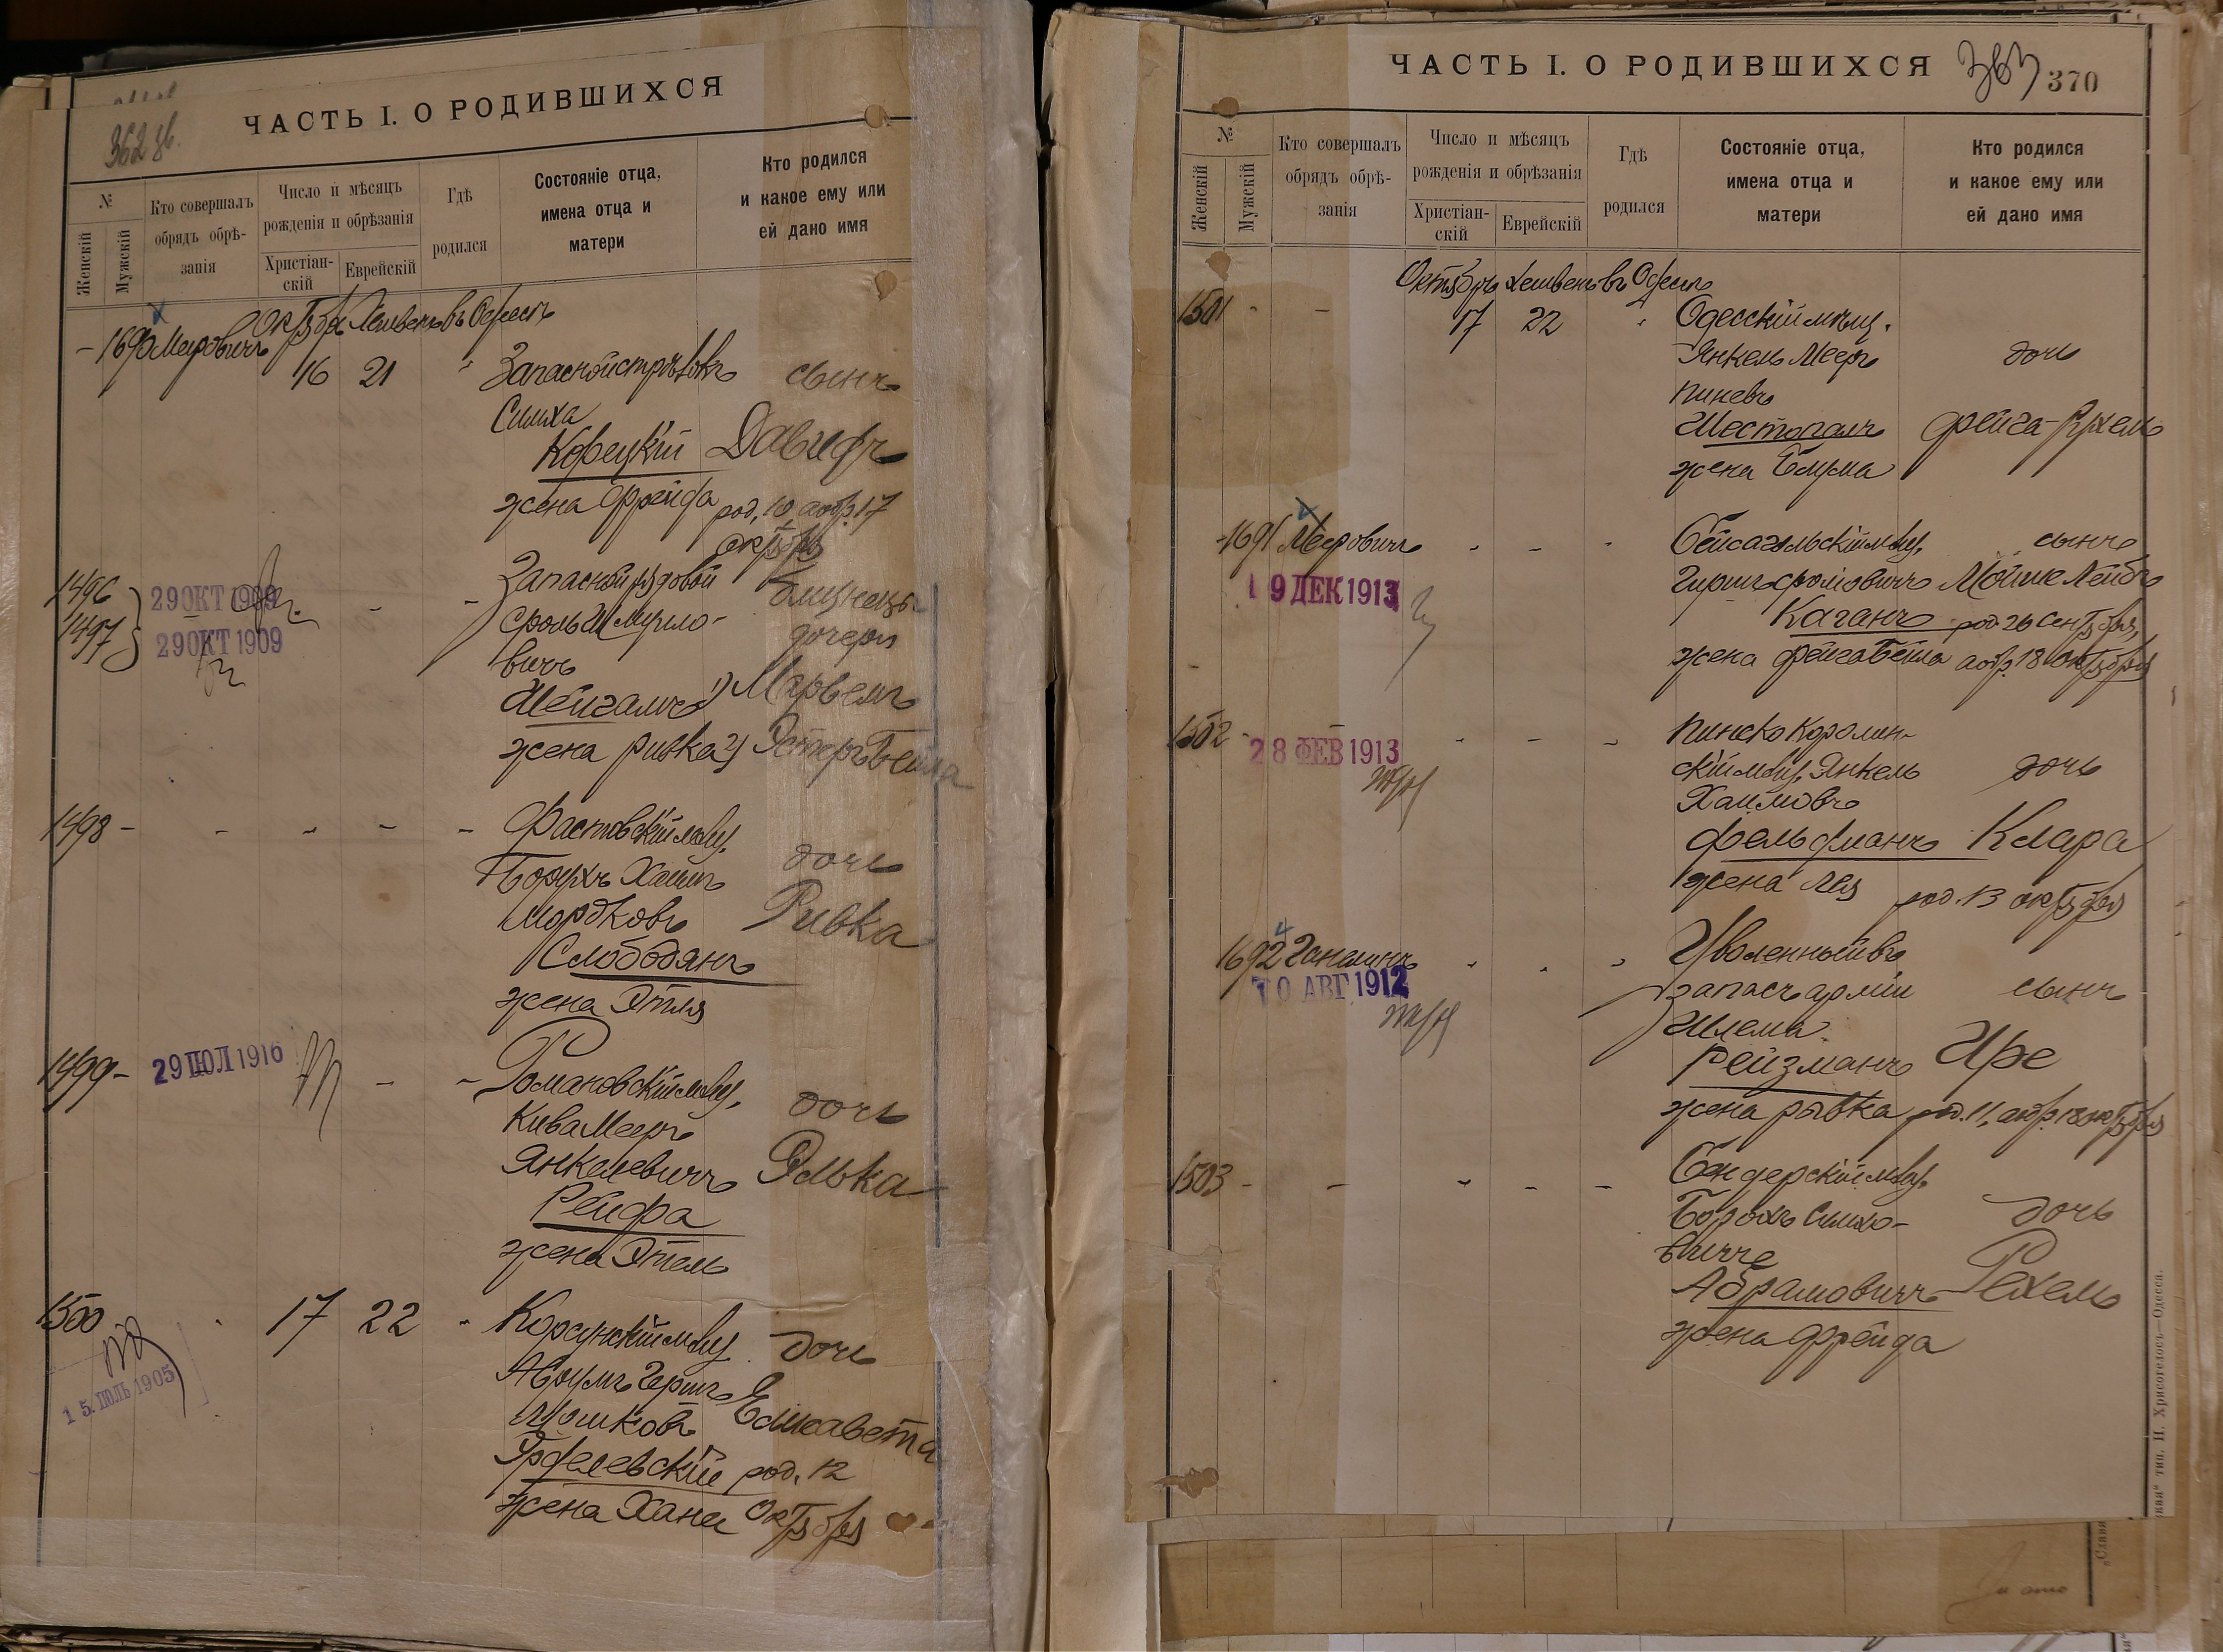 ЧАСТЬ I. О РОДИВШИХСЯ
362 об.
№
Женскій
Мужскій
Кто совершалъ
обрядъ обрѣ-
занія
Число и мѣсяцъ
рожденія и обрѣзанія
Христіан-
скій
Еврейскій
Гдѣ
родился
Состояніе отца,
имена отца и
матери
Кто родился
и какое ему или
ей дано имя
Октября Хешвенъ въ Одессѣ
- 1690 Меровичъ 16 21 " Запасной стрѣлокъ сынъ
Симха
Корецкій Давидъ
жена Фрейда род. 10, а обр. 17
октября
1496 29 ОКТ 1909 - - Запасной рядовой близнецы
1497 29 ОКТ 1909 Сроль Шмуло- дочери
вичъ
Шейгамъ 1) Марьемъ
жена Ривка 2) Эстеръ Бейла
1498 - - - - - - Фастовскій мѣщ.
Борухъ Хаимъ дочь
Мордковъ Ривка
Слободянъ
жена Этля
1499 - 29 ІЮЛ 1916 - - Романовскій мѣщ.
Кива Мееръ дочь
Янкелевичъ Элька
Рейфа
жена Этель
1500 17 22 " Корсунскій мѣщ. дочь
15. ІЮЛЬ 1905
Аврумъ Гершъ Елисавета
Мошковъ
род. 12
жена Хана октября
ЧАСТЬ I. О РОДИВШИХСЯ
363 370
№
Женскій
Мужскій
Кто совершалъ
обрядъ обрѣ-
занія
Число и мѣсяцъ
рожденія и обрѣзанія
Христіан-
скій
Еврейскій
Гдѣ
родился
Состояніе отца,
имена отца и
матери
Кто родился
и какое ему или
ей дано имя
Октябрь Хешвенъ въ Одессѣ
1501 - - 17 22 " Одесскій мѣщ.
Янкель Мееръ дочь
Пиневъ
Шестопалъ Фейга-Рухель
жена
- 1691 Меровичъ - - - мѣщ. сынъ
19 ДЕК 1913
Гершъ Фроимовичъ Мойше Лейбъ
Каганъ род. 26 сентября,
жена Фейга Бейла а обр. 18 октября
1502 - - - - - Пинско Каролин-
28 ФЕВ 1913
скій мѣщ. Янкель дочь
Хаимовъ
Фельдманъ Клара
жена Лея род. 13 октября
1692 Ганелинъ - - - Уволенный въ
10 АВГ 1912
запасъ арміи сынъ
Шлема
Рейзманъ Ире
жена Рывка род. 11, а обр. 18 октября
1503 - - - - - Бендерскій мѣщ.
Борохъ Симхо- дочь
вичъ
Абрамовичъ Рехель
жена Фрейда
тип. И. Хрисогелосъ—Одесса.